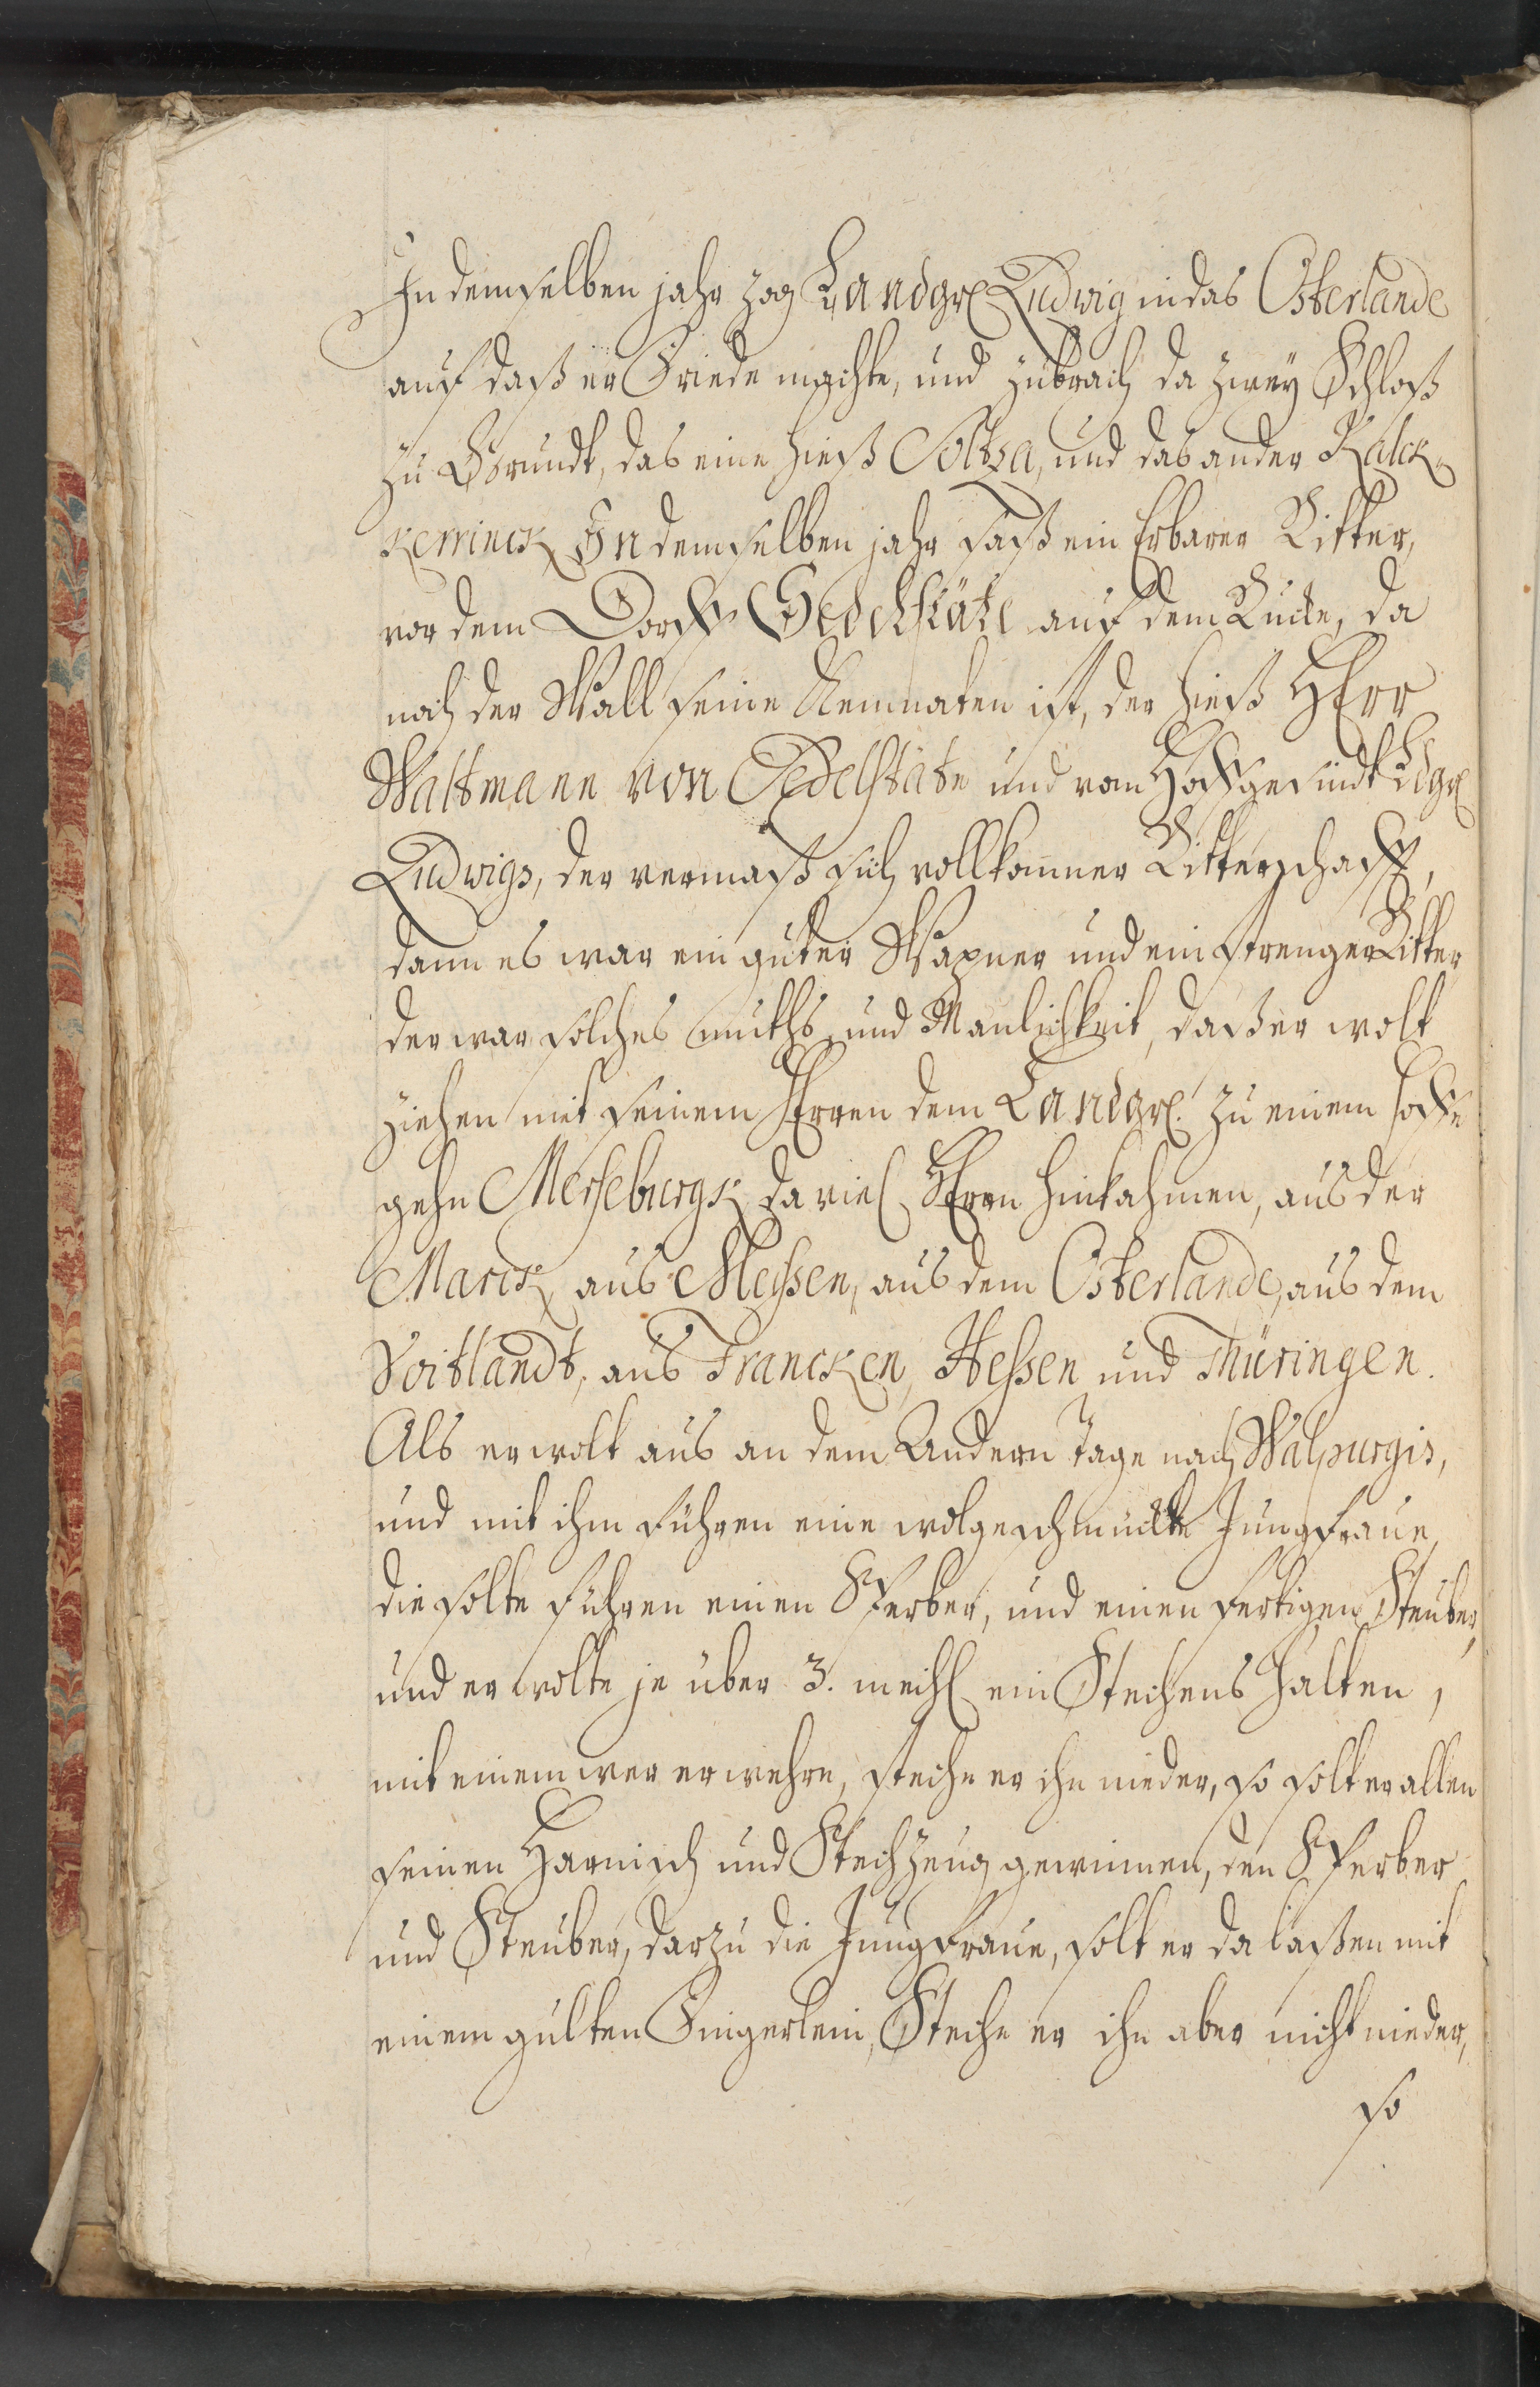 In demselben jahr zog Landgr. Ludwig in das Osterlande
auf daß er Friede machte, und zubrach da zwey Schloß
zu Grundt, das eine hieß Soltza, und das ander Kalck-
In demselben jahr saß ein Erbarer Ritter,
vor dem Dorff auf dem Rucke, da
noch der Wall seine Kemnaten ist, der hieß HErr
Waltmann von Sedelstäte und von Hoffgesindt Ldgr.
Ludwigs, der vermaß sich vollkommner Ritterschafft,
dann es war ein guter Wapner und ein strenger Ritter
der war solches muths und Manlichkeit, daß er wolt
ziehen mit seinem HErren dem Landgr. zu einem hoffe
gehn Merseburgk, da viel HErrn hinkahmen, aus der
Marck, aus Meyssen, aus dem Osterlande, aus dem
Voitlandt, aus Francken, Hessen und Thüringen.
Als er wolt aus an dem Andern Tage nach Walpurgis,
und mit ihm führen eine wolgeschmückte Jungfraue,
die solte führen einen Sperber, und einen fertigen Steuber,
und er wolte je über 3. meihl ein Stechens halten,
mit einem wer er wehre, steche er ihn nieder, so solt er allen
seinen Harnisch und Stechzeug gewinnen, den Sperber
und Steuber, darzu die Jungfraue, solt er da laßen mit
einem gulten Fingerlein, Steche er ihn aber nicht nieder,
so